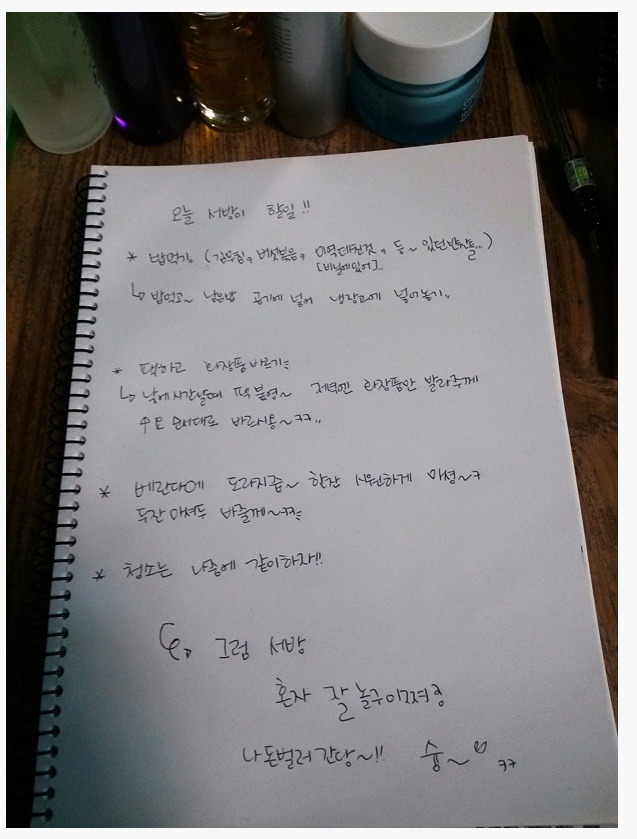 오늘 서방이 할일!!
* 밥먹기 (김무침, 버섯볶음, 미역데친것, 등~ 있던반찬들...)
[비닐에있어]..
↳ 밥먹고~ 남은밥 공기에 넣어 냉장고에 넣어놓기..
* 팩하고 화장품바르기
↳ 낮에시간날때 팩 붙영~ 저녁엔 화장품만 발라주께
순서대로 바르시용~ㅋㅋ..
* 베란다에 도라지즙~ 한잔 시원하게 마셩~ㅋ
두잔마셔두 봐줄께~ㅋㅋ
* 청소는 나중에 같이하자!!
그럼 서방
혼자 잘 놀구이쪄용
나돈벌러간당~!! 슝~ ㅋㅋ